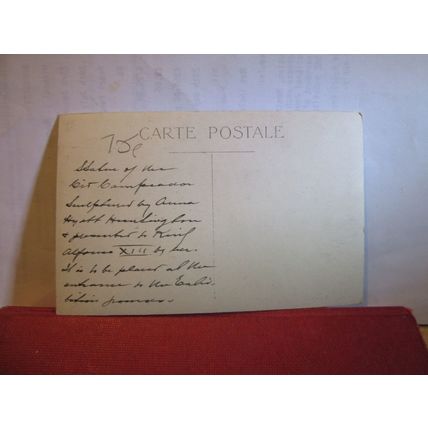 75c
CARTE POSTALE
Statue of the
Cid Campeador
Sculptured by Anna
Hyatt Huntington
& presented to King
Alfonso XIII by her.
It is to be placed at the
entrance to the Exhi-
bition grounds.